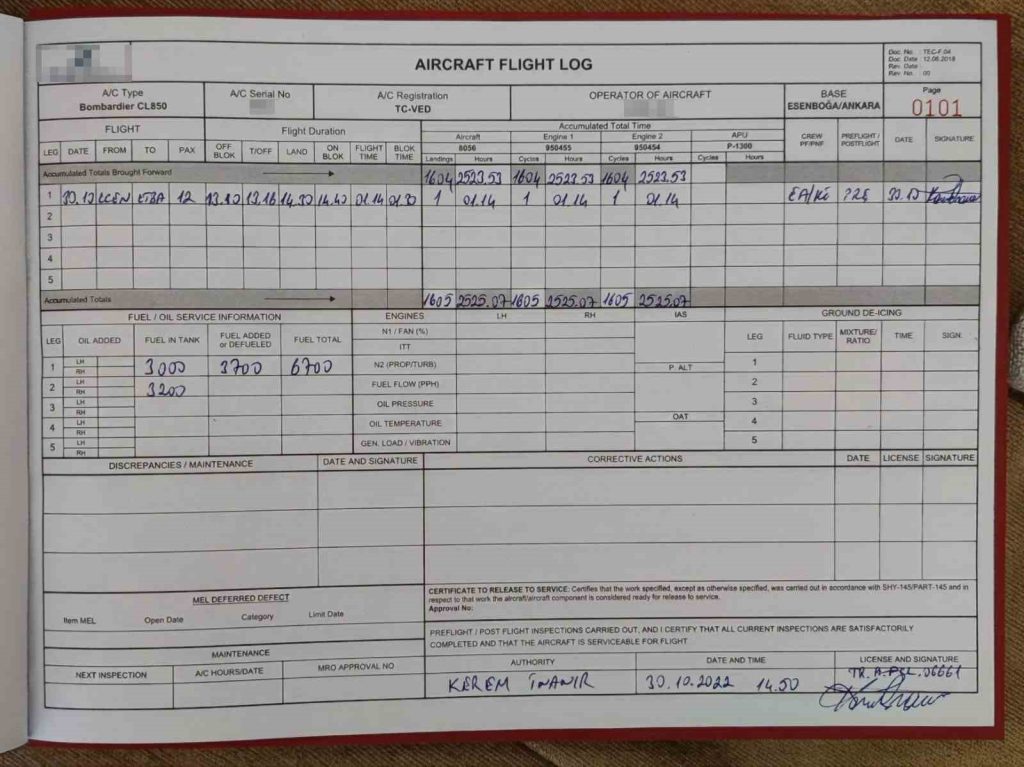 AIRCRAFT FLIGHT LOG
Doc. No. : TEC-F.04
Doc. Date : 12.06.2018
Rev. Date :
Rev. No. : 00
A/C Type
Bombardier CL850
A/C Serial No
A/C Registration
TC-VED
OPERATOR OF AIRCRAFT
BASE
ESENBOĞA/ANKARA
Page
0101
FLIGHT
Flight Duration
Accumulated Total Time
Aircraft Engine 1 Engine 2 APU
8056 950455 950454 P-1300
LEG DATE FROM TO PAX OFF BLOK T/OFF LAND ON BLOK FLIGHT TIME BLOK TIME Landings Hours Cycles Hours Cycles Hours Cycles Hours CREW PF/PNF PREFLIGHT / POSTFLIGHT DATE SIGNATURE
Accumulated Totals Brought Forward 1604 2523.53 1604 2523.53 1604 2523.53
1 30.10 LCEN LTBA 12 13.10 13.16 14.30 14.40 01.14 01.30 1 01.14 1 01.14 1 01.14 EA/Kİ PRE 30.10
2
3
4
5
Accumulated Totals 1605 2525.07 1605 2525.07 1605 2525.07
FUEL / OIL SERVICE INFORMATION
LEG OIL ADDED FUEL IN TANK FUEL ADDED or DEFUELED FUEL TOTAL
1 LH RH 3000 3700 6700
2 LH RH 3200
3 LH RH
4 LH RH
5 LH RH
ENGINES LH RH IAS
N1 / FAN (%)
ITT
N2 (PROP/TURB) P. ALT
FUEL FLOW (PPH)
OIL PRESSURE
OIL TEMPERATURE OAT
GEN. LOAD / VIBRATION
GROUND DE-ICING
LEG FLUID TYPE MIXTURE/ RATIO TIME SIGN.
1
2
3
4
5
DISCREPANCIES / MAINTENANCE DATE AND SIGNATURE CORRECTIVE ACTIONS DATE LICENSE SIGNATURE
MEL DEFERRED DEFECT
Item MEL Open Date Category Limit Date
MAINTENANCE
NEXT INSPECTION A/C HOURS/DATE MRO APPROVAL NO
CERTIFICATE TO RELEASE TO SERVICE: Certifies that the work specified, except as otherwise specified, was carried out in accordance with SHY-145/PART-145 and in
respect to that work the aircraft/aircraft component is considered ready for release to service.
Approval No:
PREFLIGHT / POST FLIGHT INSPECTIONS CARRIED OUT, AND I CERTIFY THAT ALL CURRENT INSPECTIONS ARE SATISFACTORILY
COMPLETED AND THAT THE AIRCRAFT IS SERVICEABLE FOR FLIGHT
AUTHORITY DATE AND TIME LICENSE AND SIGNATURE
KEREM İNANIR 30.10.2022 14.50 TR.A.PŞL.06661